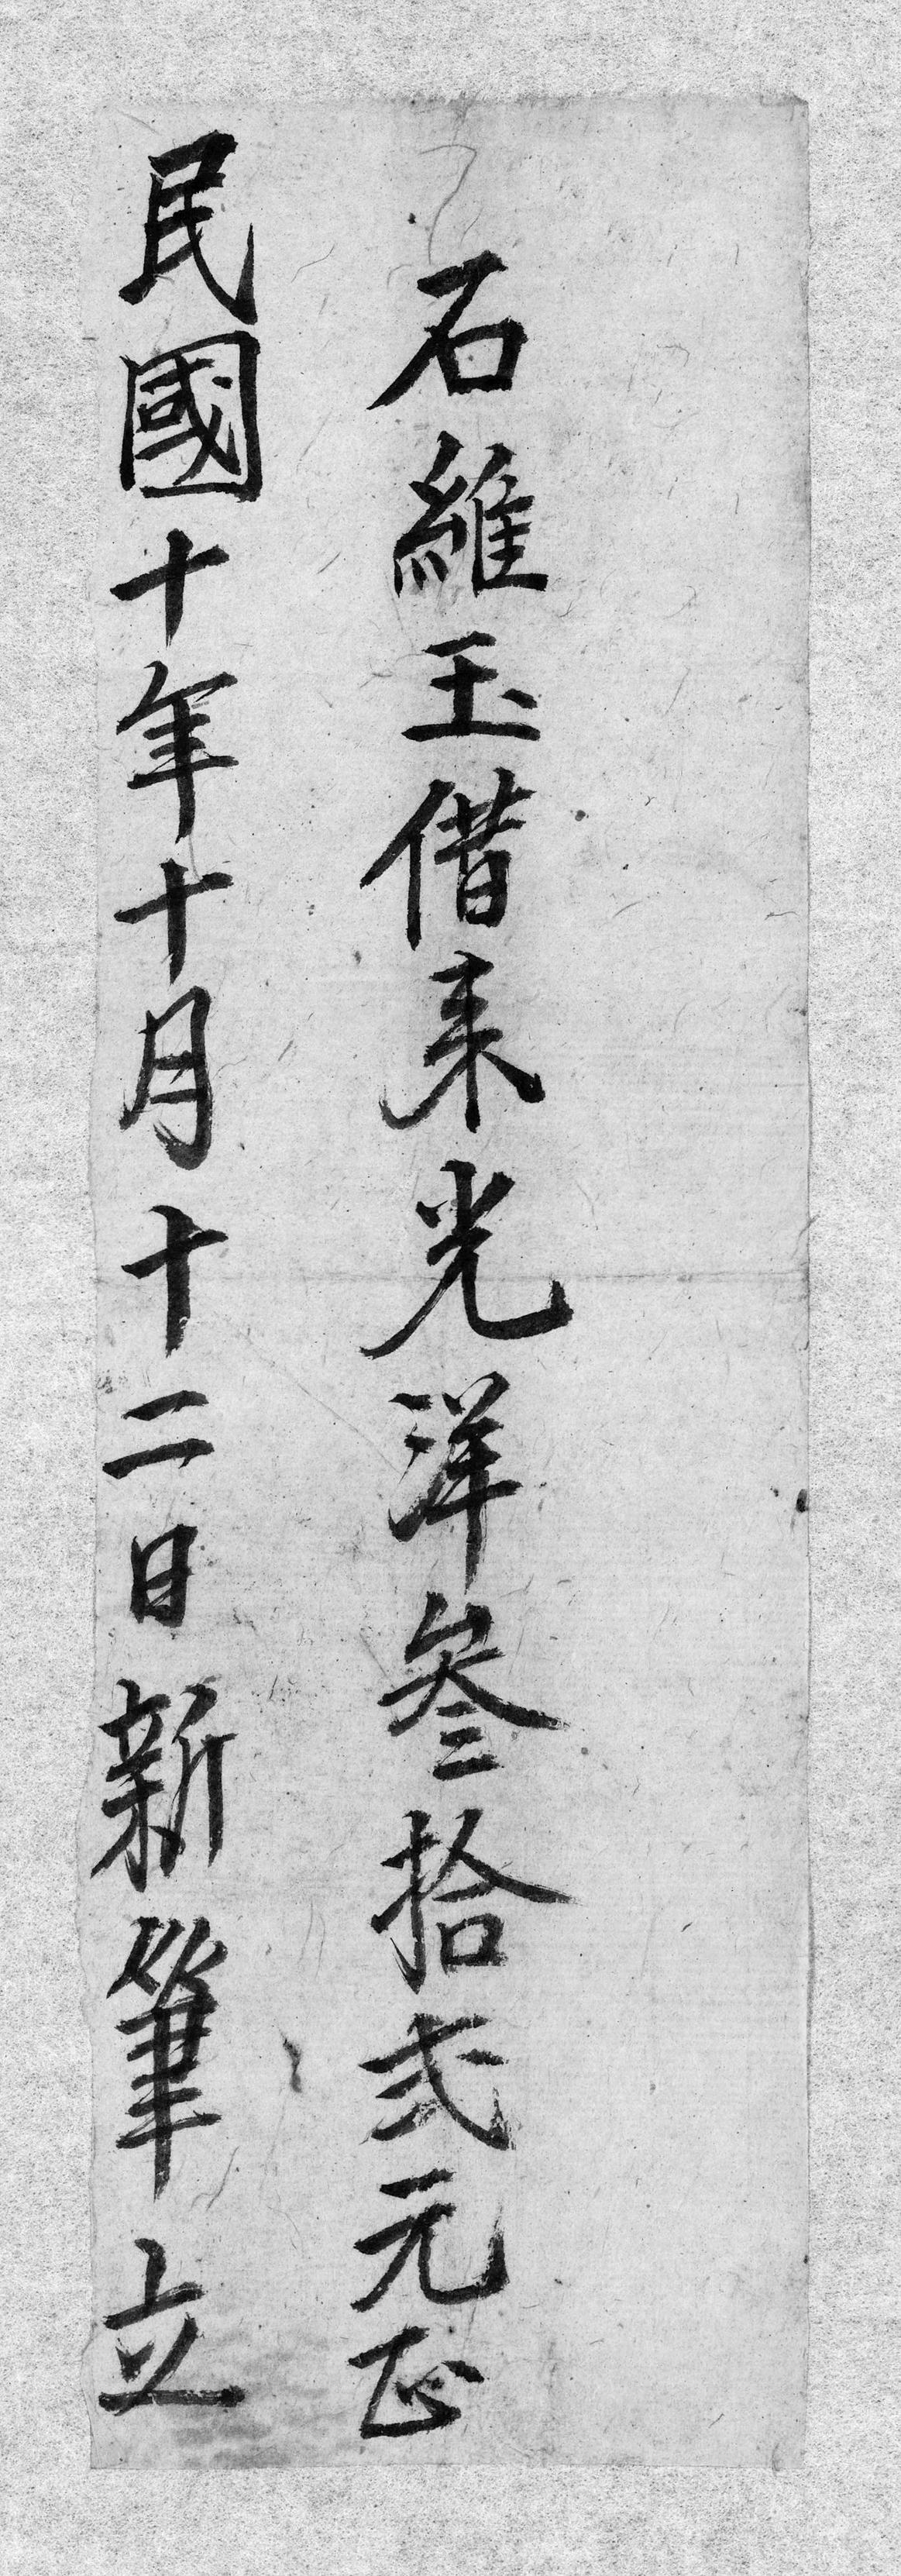 石維玉借来光洋叄拾弍元正
民國十年十月十二日新筆立